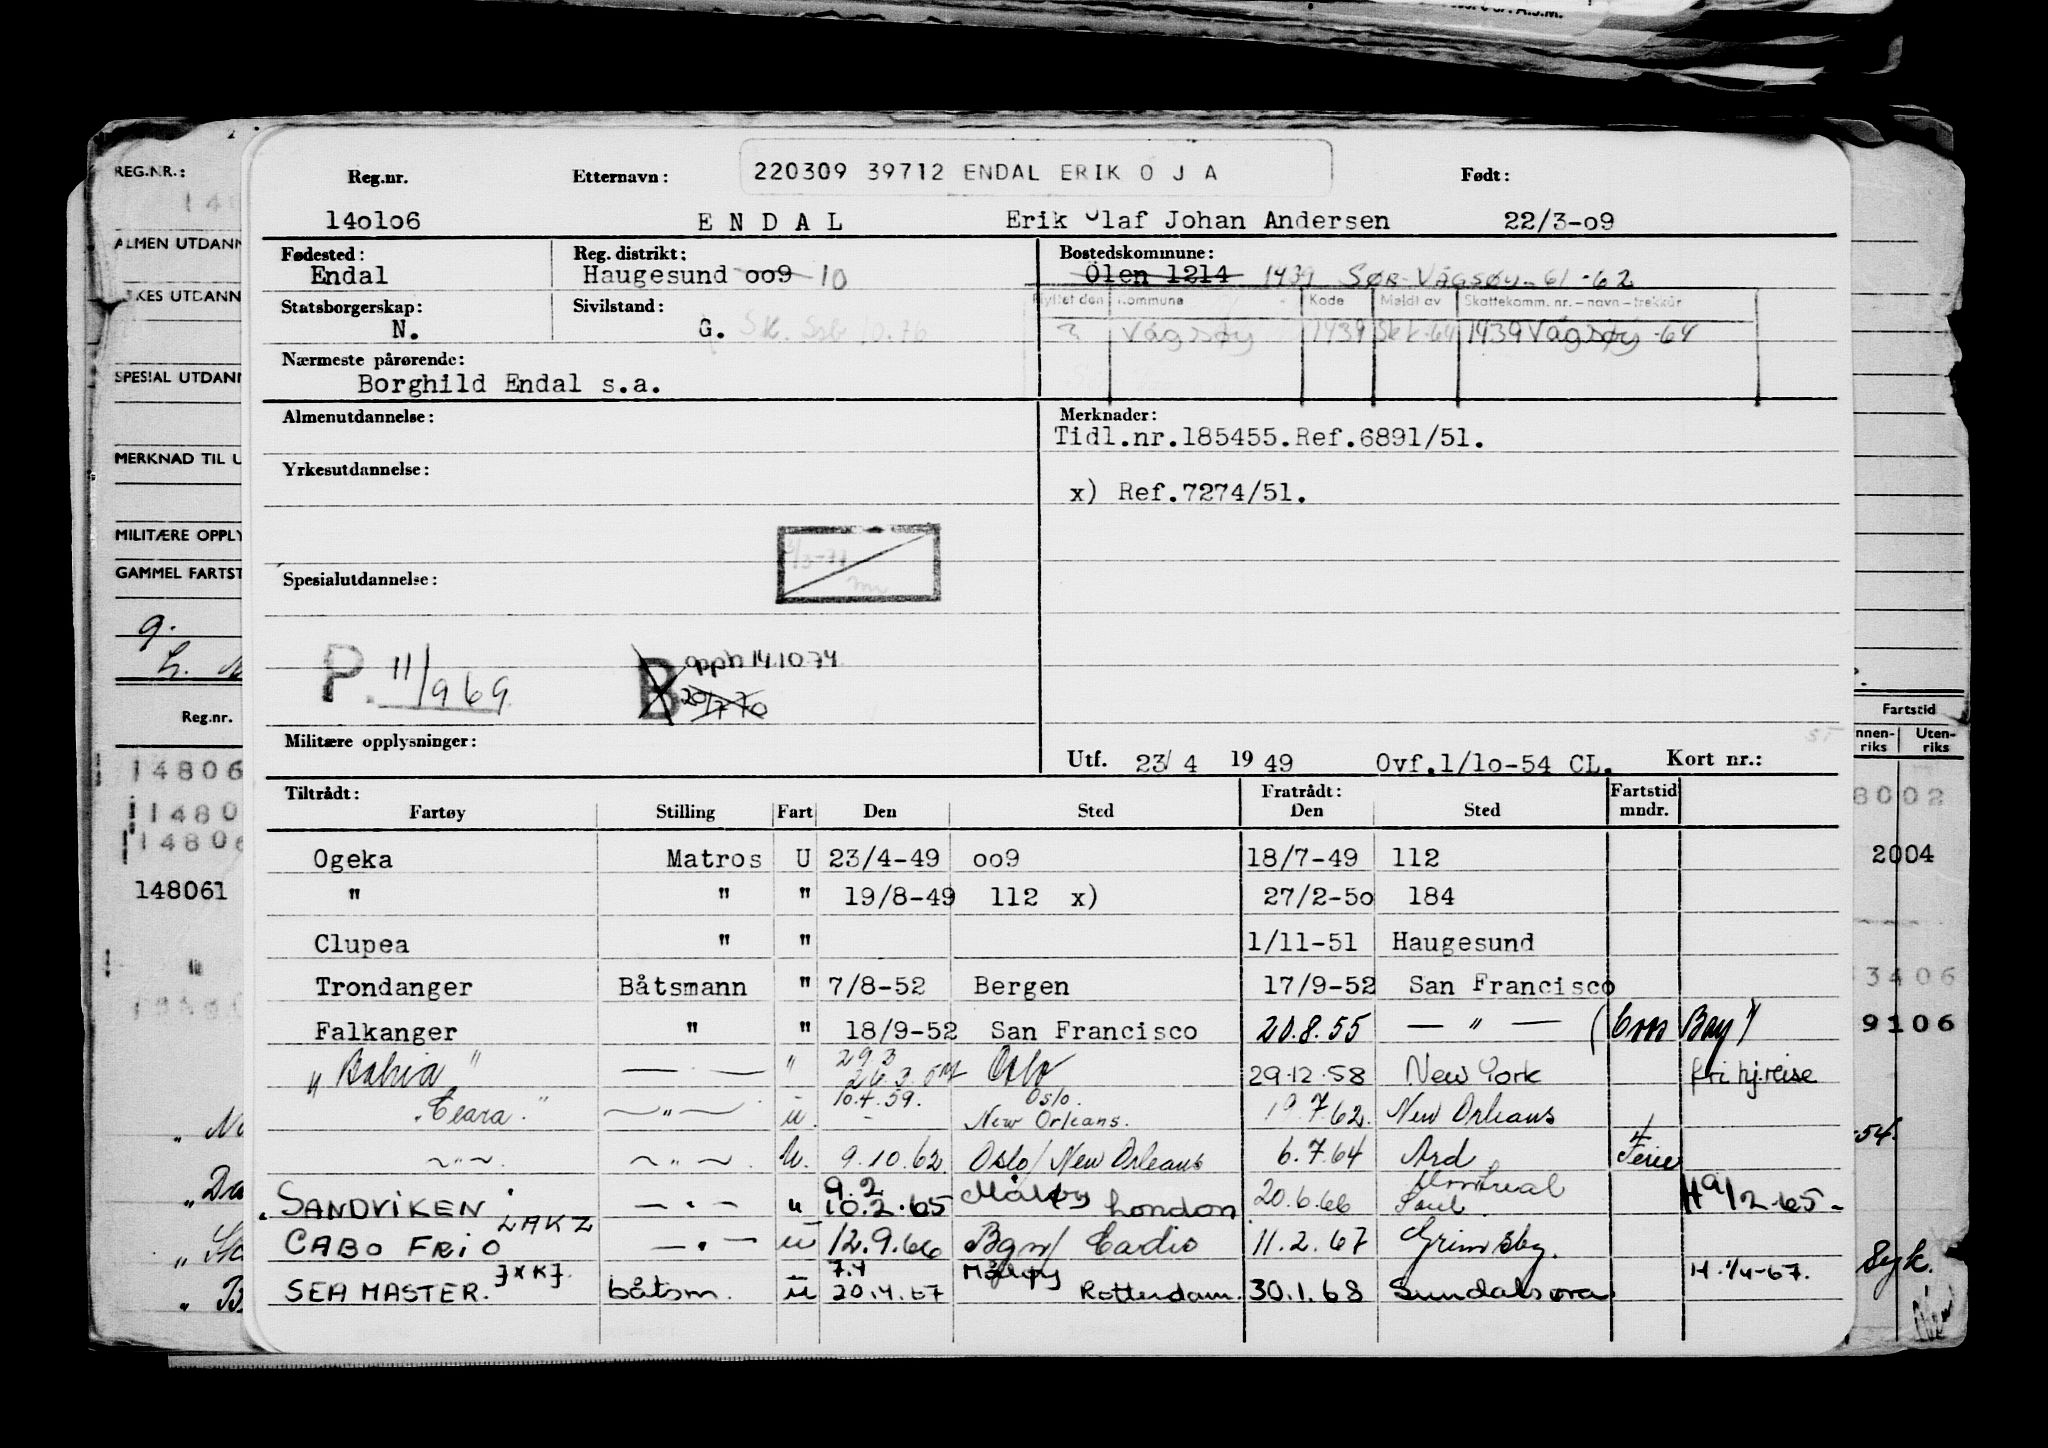 220309 39712 ENDAL ERIK O J A
Reg.nr. Etternavn: Født:
14o1o6 E N D A L Erik Olaf Johan Andersen 22/3-o9
Fødested: Reg. distrikt: Bostedskommune:
Endal Haugesund oo9 10 Ölen 1214 1439 SØR-VÅGSØY-61-62
Flyttet den Kommune Kode Meldt av Skattekomm. nr. – navn – trekkår
Statsborgerskap: Sivilstand:
N. G. Vågsøy 1439 Skk-64 1439 Vågsøy -64
Nærmeste pårørende:
Borghild Endal s.a.
Almenutdannelse: Merknader:
Tidl.nr.185455.Ref.6891/51.
Yrkesutdannelse:
x) Ref.7274/51.
Spesialutdannelse:
P. 11/969 B opph 14.10.74
20/7-70
Militære opplysninger:
Utf. 23/ 4 19 49 Ovf.1/1o-54 CL. Kort nr.:
Tiltrådt: Fratrådt: Fartstid
Fartøy Stilling Fart Den Sted Den Sted mndr.
Ogeka Matros U 23/4-49 oo9 18/7-49 112
" " " 19/8-49 112 x) 27/2-5o 184
Clupea " " 1/11-51 Haugesund
Trondanger Båtsmann " 7/8-52 Bergen 17/9-52 San Francisco
Falkanger " " 18/9-52 San Francisco 20.8.55 — " — (Coos Bay)
29.3
"Bahia" — " — " 26.3. Oslo 29.12.58 New York fri hj.reise
10.4.59. Oslo.
"Ceara." — " — u. - New Orleans. 19.7.62. New Orleans
— " — — " — u. 9.10.62 Oslo/New Orleans 6.7.64 Ard 4 Ferie
9.2 Måløy Montreal
SANDVIKEN. LAKZ — " — " 10.2.65 London 20.6.66 H 9/2-65-
CABO FRIO — " — u 12.9.66 Bgn/ Cadio 11.2.67 Grimsby.
JXKJ. 7.4 Måløy
SEA MASTER. båtsm. u 20.4.67 Rotterdam. 30.1.68 Sundalsøra H. 1/4-67.
REG.NR.:
ALMEN UTDANN
KES UTDANN
SPESIAL UTDANN
MERKNAD TIL U
MILITÆRE OPPLY
GAMMEL FARTST
Reg.nr.
14806
1480
14806
148061
Fartstid
nnen-riks Uten-riks
8002
2004
3406
9106
-54.
Syk.